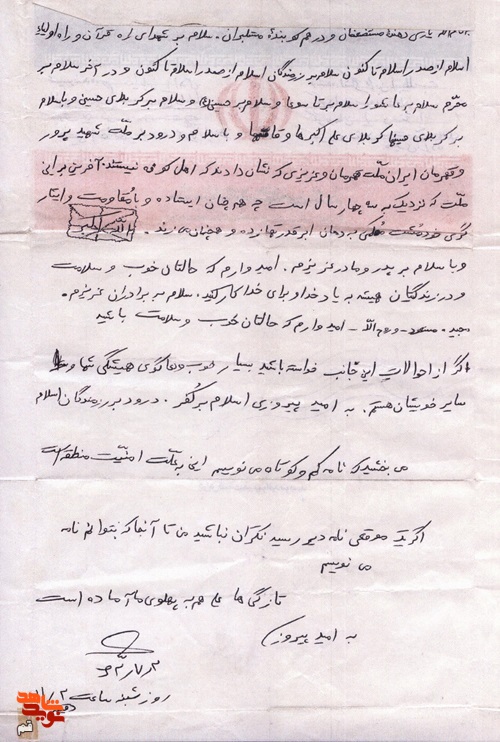 یاری دهندهٔ مستضعفان و درهم کوبندهٔ مستکبران. سلام بر شهدای راه قرآن و راه اولیاء
اسلام از صدر اسلام تاکنون سلام بر رزمندگان اسلام از صدر اسلام تاکنون و در آخر سلام بر
محرم سلام به عاشورا سلام بر تاسوعا و سلام بر حسین و سلام بر کربلای حسین و با سلام
بر کربلای حسینها کربلای علی اکبرها و قاسمها و با سلام و درود بر ملت شهید پرور
و قهرمان ایران ملت قهرمان و عزیزی که نشان دادند که اهل کوفه نیستند آفرین بر این
ملت که نزدیک به سه چهار سال است که همچنان ایستاده و با مقاومت و ایثار
خود مشت محکمی به دهان ابرقدرتها زده و همچنان می زند. الله اکبر
و با سلام بر پدر و مادر عزیزم. امیدوارم که حالتان خوب و سلامت
و در زندگیتان همیشه به یاد خدا و برای خدا کار کنید. سلام بر برادران عزیزم.
مجید. مسعود - روح الله - امیدوارم که حالتان خوب و سلامت باشید
اگر از احوالات این جانب خواسته باشید بسیار خوب و دعاگوی همیشگی شما و
سایر خویشان هستم. به امید پیروزی اسلام بر کفر. درود بر رزمندگان اسلام
می بخشید که نامه کم و کوتاه می نویسم این به علت امنیت منطقه است
اگر یک موقعی نامه دیر رسید نگران نباشید من تا آنجا که بتوانم نامه
می نویسم
تازگی ها علی هم به پهلوی ما آمده است
به امید پیروزی
روز شنبه ساعت
نوید شاهد
قم